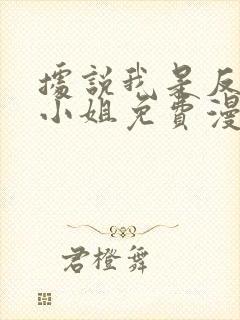 據說我是反
小姐免費漫
君橙舞